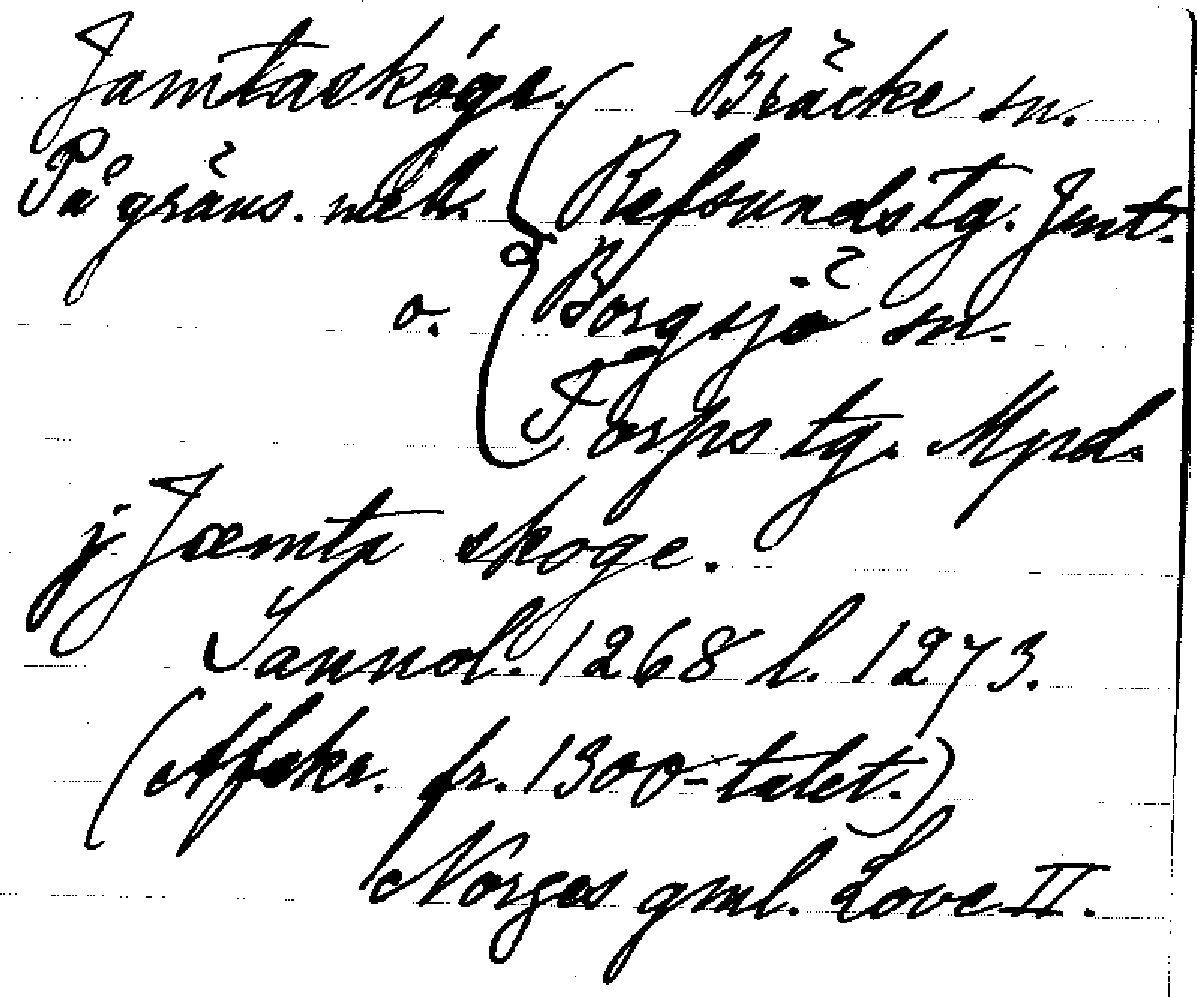 Jamtaskógr. Bräcke sn.
På gräns. mell. Refsunds tg. Jmt.
o. Borgsjö sn.
Torps tg. Mpd.
j Jæmta skoge.
Sannol. 1268 l. 1273.
(Afskr. fr. 1300-talet.)
Norges gml. Love II.